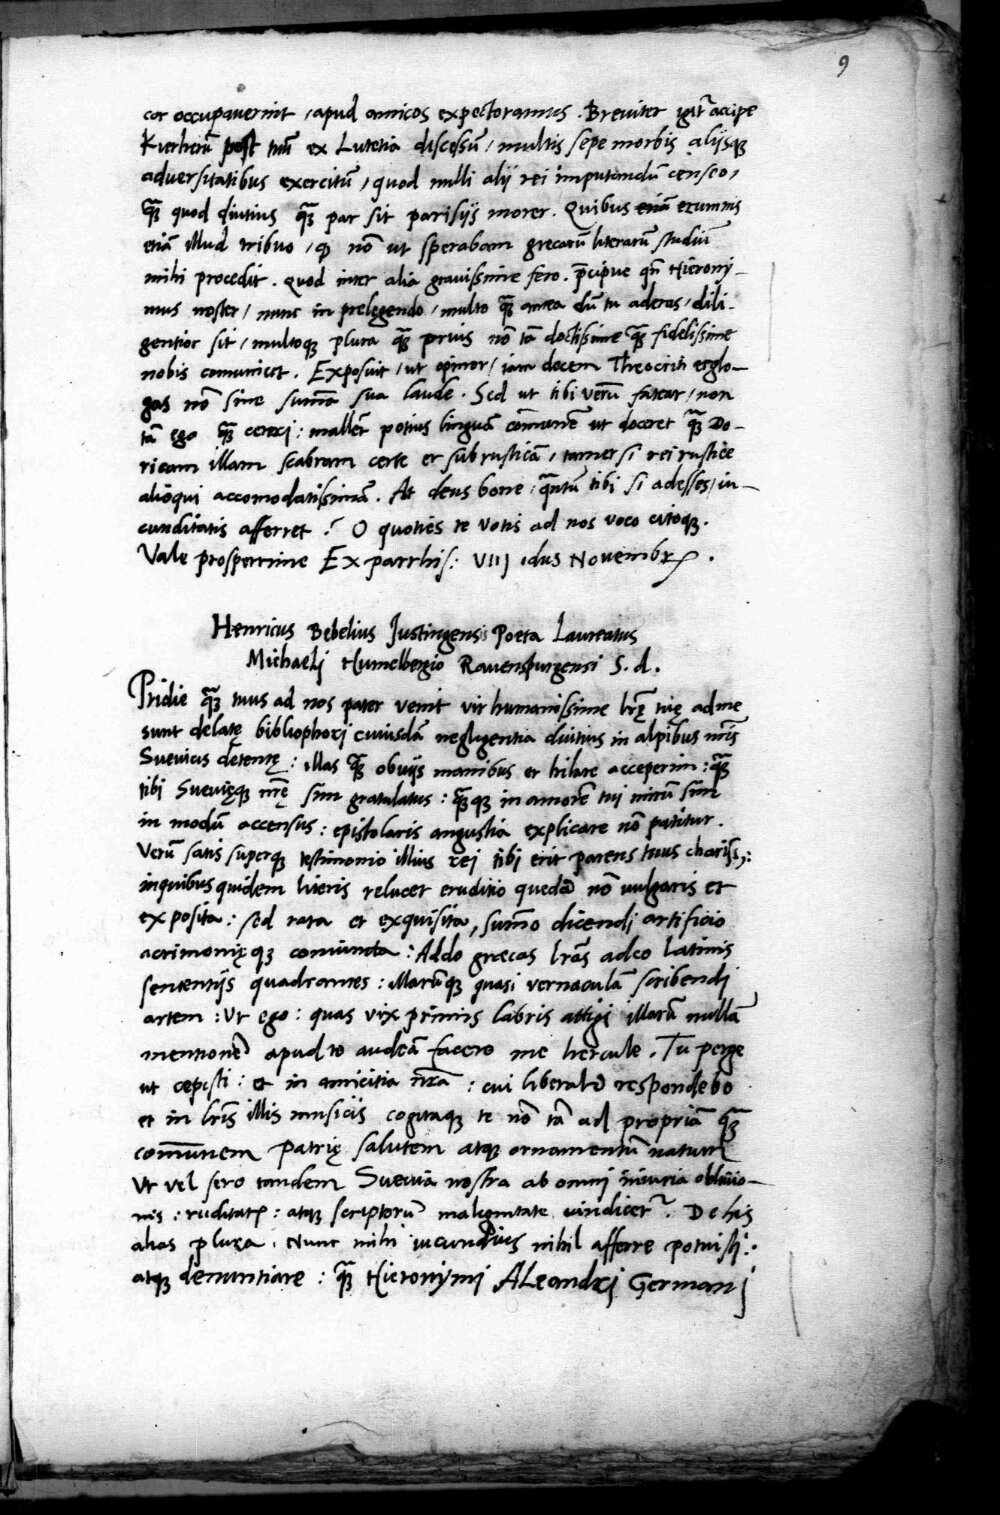 9
cor occupaverint, apud amicos expectoramus. Breviter igit̃ accipe
Kierherũ post tuũ ex Lutetia discessũ, multis sepe morbis alijsq̃
adversitatibus exercitũ, quod nulli alij rei imputandũ censeo,
q̃ quod diutius q̃ par sit parisijs morer. Quibus etiã erumnis
etiã illud tribuo, q̃ nõ ut sperabam grecarũ literarũ studiũ
mihi procedit. Quod inter alia gravissime fero. p̃cipue qñ Hierony-
mus noster, nunc in prelegendo, multo q̃ antea dũ tu aderas, dili-
gentior sit, multoq̃ plura q̃ prius nõ tã doctissime q̃ fidelissime
nobis comunicet. Exposuit, ut opinor, iam decem Theocriti eglo-
gas nõ sine sum̃a sua laude. Sed ut tibi verũ fatear, non
tã ego q̃ ceteri: mallẽt potius linguã com̃unẽ ut doceret q̃ Do-
ricam illam scabram certe et subrusticã, tamet si rei rustice
alioqui accomodatissimã. At deus bone, q̃ntũ tibi si adesses, iu-
cunditatis afferret? O quoties te votis ad nos voco citoq̃.
Vale prosperrime Ex parrhis: VIIJ idus Novembr.
Henricus Bebelius Justingensis Poeta Laureatus
Michaeli Humelbergio Ravenspurgensi S. d.
Pridie q̃ tuus ad nos pater venit vir humanissime lr̃ę tuę ad me
sunt delatę bibliophori cuiusdã negligentia diutius in alpibus nr̃is
Suevicis detentę: illas q̃ obvijs manibus et hilare acceperim: q̃
tibi Suevięq̃ nr̃ę sim gratulatus: q̃q̃ in amorẽ tui mirũ sim
in modũ accensus: epistolaris angustia explicare nõ patitur.
Verũ satis superq̃ testimonio illius rei tibi erit parens tuus chariss,:
in quibus quidem literis relucet eruditio quedã nõ vulgaris et
exposita: sed rara et exquisita, sum̃o dicendi artificio
acrimonięq̃ coniuncta: Addo græcas lr̃as adeo Latinis
sententijs quadrantes: illarũq̃ quasi vernaculã scribendi
artem: Ut ego: quas vix primis labris attigi illarũ nullã
mentionẽ apud te audeã facere me hercule. Tu perge
ut cepisti: et in amicitia nr̃a: cui liberalẽ respondebo
et in lr̃is illis musicis cogitaq̃ te nõ tã ad propriã q̃
com̃unem patrię salutem atq̃ ornamentũ natum
Ut vel sero tandem Suevia nostra ab omni iniuria oblivio-
nis: ruditatis: atq̃ scriptorũ malignitate vindicet̃. De his
alias plura. Nunc mihi iucundius nihil afferre potuisti:
atq̃ denuntiare: q̃ Hieronymi ALeandri Germani